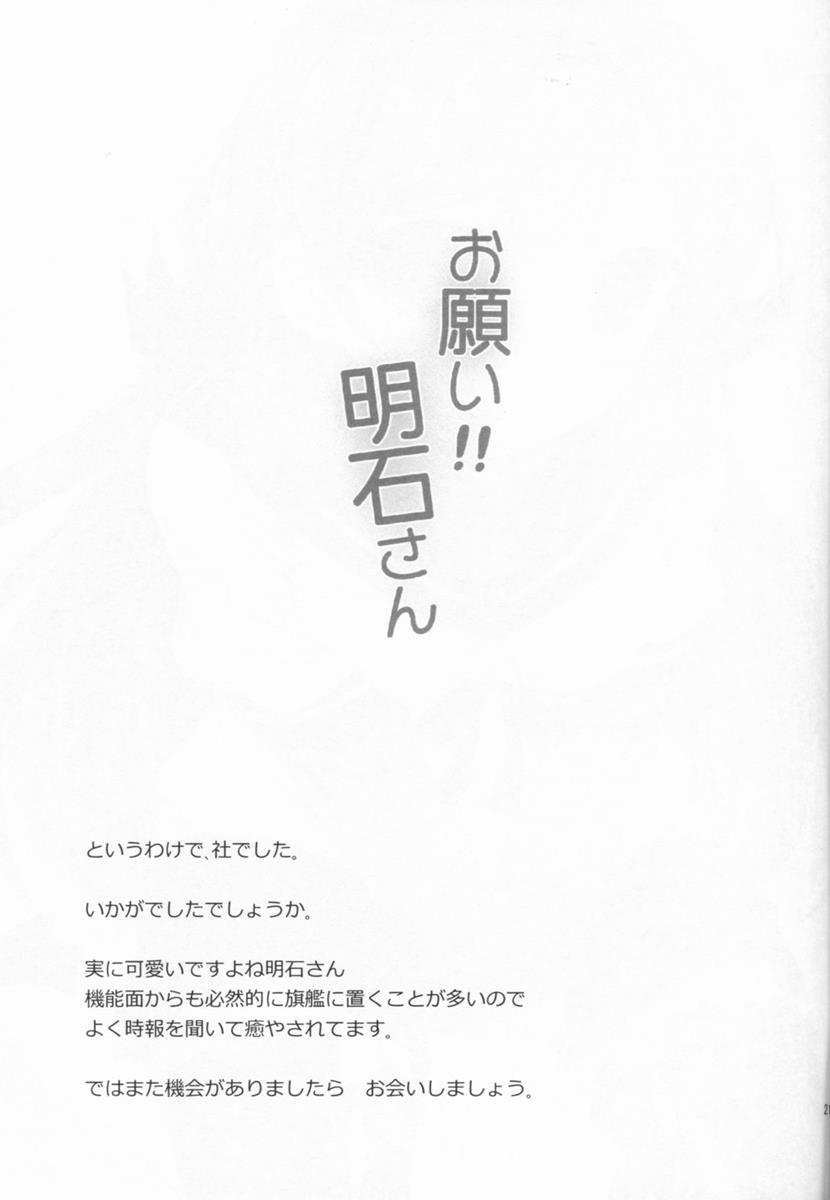 お願い!!
明石さん
というわけで、社でした。
いかがでしたでしょうか。
実に可愛いですよね明石さん
機能面からも必然的に旗艦に置くことが多いので
よく時報を聞いて癒やされてます。
ではまた機会がありましたら　お会いしましょう。